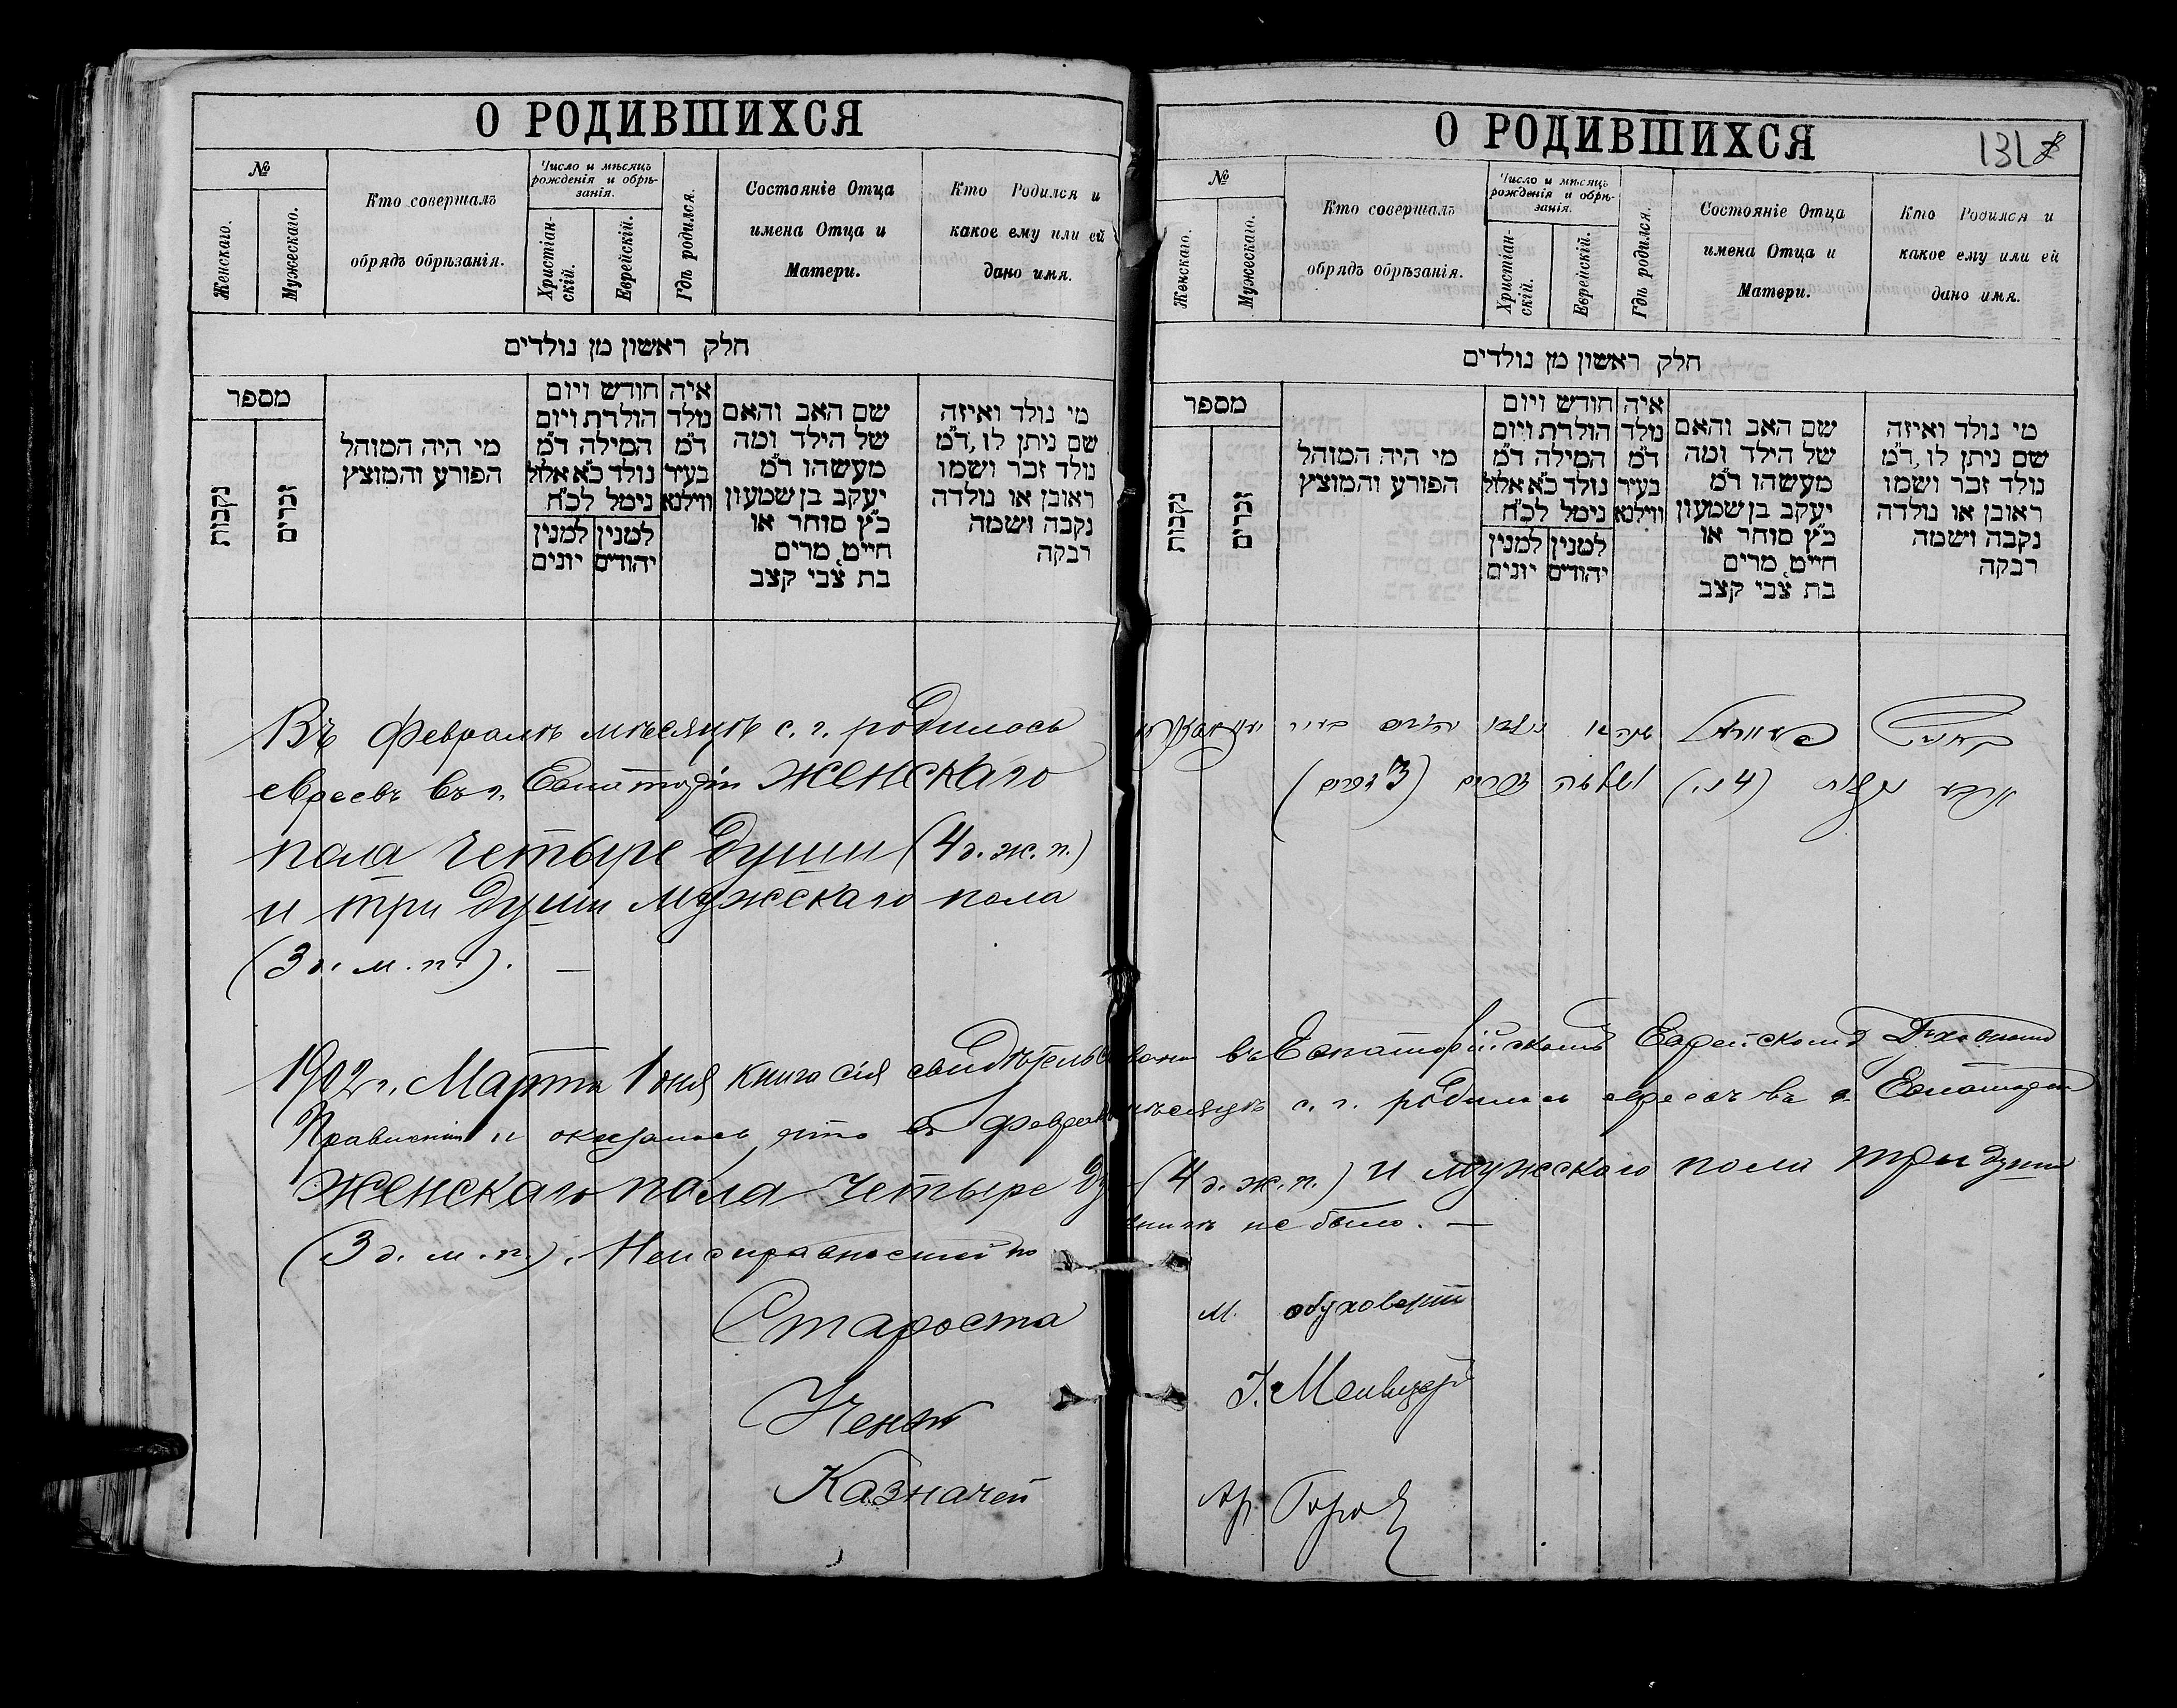 О РОДИВШИХСЯ
№
Женскаго.
Мужескаго.
Кто совершалъ
обрядъ обрѣзанія.
Число и мѣсяцъ
рожденія и обрѣ-
занія.
Христіан-
скій.
Еврейскій.
Гдѣ родился.
Состояніе Отца
имена Отца и
Матери.
Кто Родился и
какое ему или ей
дано имя.
חלק ראשון מן נולדים
מספר
נקבות
זכרים
מי היה המוהל
הפורע והמוצץ
חודש ויום
הולדת ויום
המילה ד״מ
נולד כ״א אלול
נימל לכ״ח
למנין יהודים
למנין יונים
איה
נולד
ד״מ
בעיר
ווילנא
שם האב והאם
של הילד ומה
מעשהו ד״מ
יעקב בן שמעון
כ״ץ סוחר או
חייט, מרים
בת צבי קצב
מי נולד ואיזה
שם ניתן לו, ד״מ
נולד זכר ושמו
ראובן או נולדה
נקבה ושמה
רבקה
Въ Февралѣ мѣсяцѣ с. г. родилось
евреевъ въ г. Евпаторіи женскаго
пола четыре души (4 д. ж. п.)
и три души мужескаго пола
(3 д. м. п.). —
О РОДИВШИХСЯ
131
№
Женскаго.
Мужескаго.
Кто совершалъ
обрядъ обрѣзанія.
Число и мѣсяцъ
рожденія и обрѣ-
занія.
Христіан-
скій.
Еврейскій.
Гдѣ родился.
Состояніе Отца
имена Отца и
Матери.
Кто Родился и
какое ему или ей
дано имя.
חלק ראשון מן נולדים
מספר
נקבות
זכרים
מי היה המוהל
הפורע והמוצץ
חודש ויום
הולדת ויום
המילה ד״מ
נולד כ״א אלול
נימל לכ״ח
למנין יהודים
למנין יונים
איה
נולד
ד״מ
בעיר
ווילנא
שם האב והאם
של הילד ומה
מעשהו ד״מ
יעקב בן שמעון
כ״ץ סוחר או
חייט, מרים
בת צבי קצב
מי נולד ואיזה
שם ניתן לו, ד״מ
נולד זכר ושמו
ראובן או נולדה
נקבה ושמה
רבקה
(4 נ׳) ושלשה זכרים (3 זכרים)
1902 г. Марта 1 дня книга сія свидѣтельствована въ Евпаторійскомъ Еврейскомъ Духовномъ
Правленіи и оказалось, что въ Февралѣ мѣсяцѣ с. г. родилось евреевъ въ г. Евпаторіи
женскаго пола четыре ду (4 д. ж. п.) и мужескаго пола три души
(3 д. м. п.). Неисправностей по книгѣ не было. —
Староста М.
Ученый
Казначей